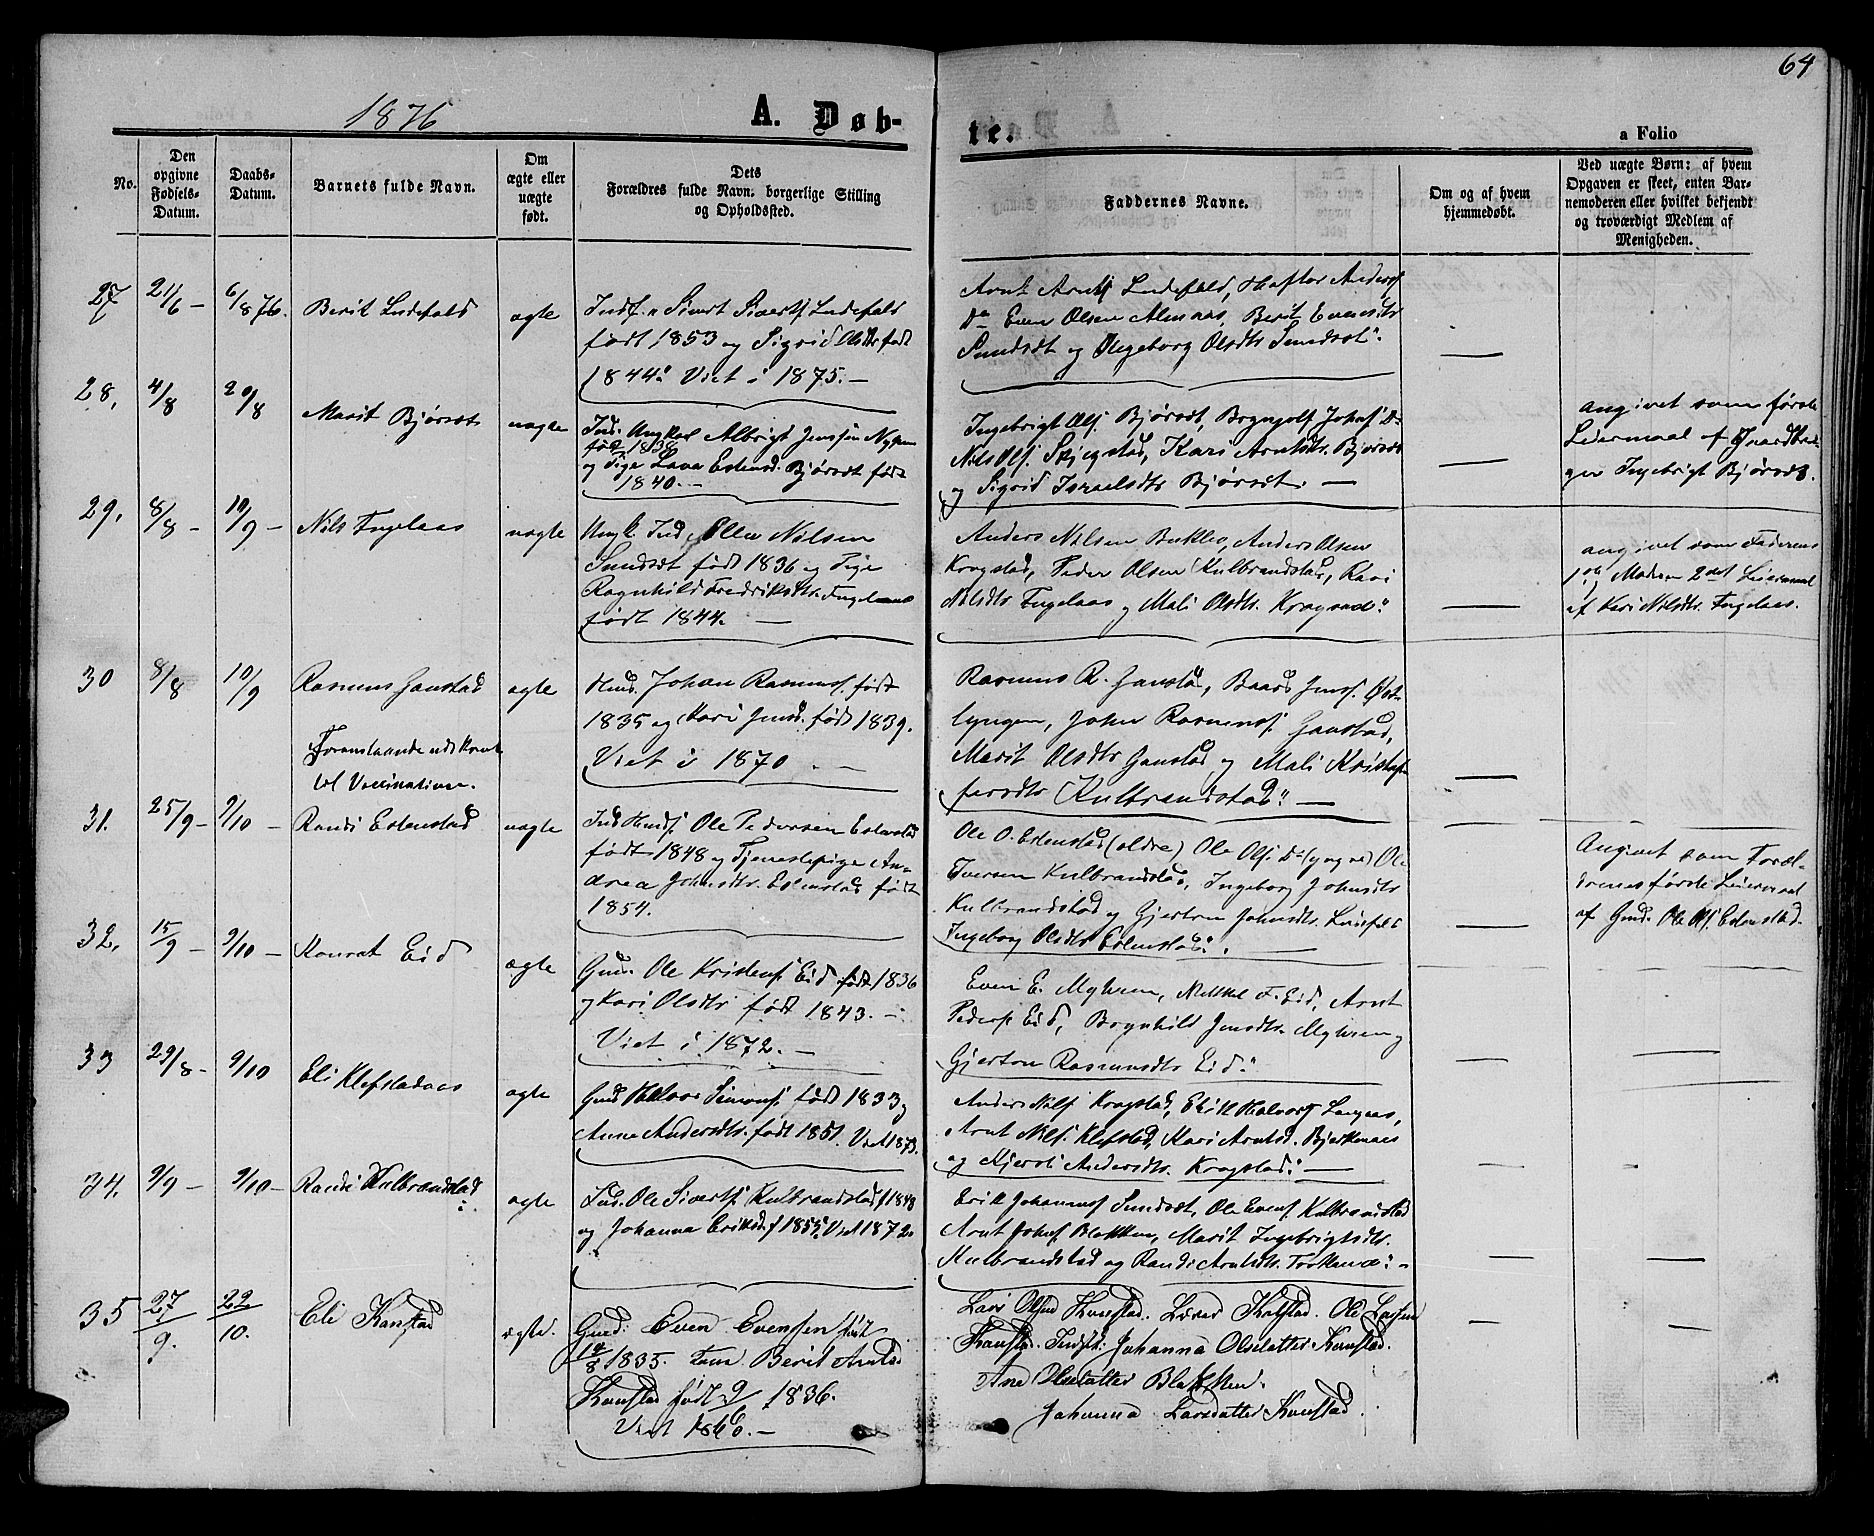 64
1876
A. Døb-
te.
a Folio
No.
Den
opgivne
Fødsels-
Datum.
Daabs-
Datum.
Barnets fulde Navn.
Om
ægte eller
uægte
født.
Dets
Forældres fulde Navn, borgerlige Stilling
og Opholdssted.
Faddernes Navne.
Om og af hvem
hjemmedøbt.
Ved uægte Børn: af hvem
Opgaven er skeet, enten Bar-
nemoderen eller hvilket bekjendt
og troværdigt Medlem af
Menigheden.
27 21/6 - 6/8 76.
Berit Ludefald
ægte
Sivert Sivertsf Ludefald
født 1853 og Sigrid Olsdtr født
1844. Viet i 1875. —
Arnt Arntsf Ludefald, Haftor Andersf
Do Even Olsen Almaas, Berit Evensdtr
Sundsdt og Ingeborg Olsdtr Sundset. —
28, 4/8 20/8
Marit Bjørset
uægte
Ind. Ungkarl Albrigt Jenssen
født 1838
og Pige Lava Estensd. Bjørset født
1840. —
Ingebrigt Olsf. Bjørset, Brynjolf Johnsf Do
Nils Olsf. Skjegstad, Kari Arntsdtr. Bjørset
og Sigrid Israelsdtr Bjørset. —
angivet som første
Leiermaal af Gaardbru-
ger Ingebrigt Bjørset.
29, 8/8 - 10/9 -
Nils Engelaas
uægte
Ungk. Ind. Ole Nilsen
Sundset født 1836 og Pige
Ragnhild Fredriksdtr. Engelaas
født 1844. —
Anders Nilsen Buklev, Anders Olsen
Krogstad, Peder Olsen Kulbrandstad, Kari
Nilsdtr Engelaas og Mali Olsdtr. Krogstad. —
angivet som Faderens
1ste og Moderens 2det Leiermaal
af Kari Nilsdtr. Engelaas.
30 8/8 10/9
Rasmus Gaustad
ægte
Johan Rasmusf. født
1835 og Kari Jensd. født 1839.
Viet i 1870 . —
Rasmus R. Gaustad, Baard Jensf. Øst-
lyngen, John Rasmusf. Gaustad,
Marit Olsdtr Gaustad og Mali Kristof-
fersdtr Kulbrandstad. —
Foranstaaende
til Vaccination.
31. 25/9 - 9/10 -
Randi Estenstad
uægte
Ole Pedersen Estenstad
født 1848 og Tjenestepige An-
drea Johnsdtr. Estenstad født
1854.
Ole O. Estenstad (ældre) Ole Olsf. Do (yngre) Ole
Iversen Kulbrandstad, Ingeborg Johnsdtr
Kulbrandstad og Gjertru Johnsdtr.
Ingeborg Olsdtr Estenstad. —
Angivet som Foræl-
drenes første Leiermaal
af Gmd. Ole Olsf. Estenstad.
32, 15/9 - 9/10 -
Konrat Eid
ægte
Gmd. Ole Kristensf Eid født 1836
og Kari Olsdtr født 1843. —
Viet i 1872. —
Even E. Myhren, Mikkel F. Eid, Arnt
Pedersf Eid, Brynhild Jensdtr. Myhren og
Gjertru Rasmusdtr Eid. —
33 29/8 - 9/10
Eli Klefstadaas
ægte
Gmd. Halvor Simonsf født 1833 og
Anne Andersdtr. født 1851. Viet 1873.
Anders Nilsf Krogstad, Erik Halvorsf Langaas,
Arnt Nilsf. Klefstad, Kari Arntsd. Bjerkenaas
og Kjersti Andersdtr. Krogstad. —
34. 9/9 - 9/10 -
Randi Kulbrandstad
ægte
Ind. Ole Sivertsf Kulbrandstad f 1848
og Johanna Eriksd. f 1855. Viet 1872.
Erik Johannesf Sundset, Ole Evensf Kulbrandstad
Arnt Johnsf Blokken, Marit Ingebrigtsdtr.
Kulbrandstad og Randi Arntsdtr. —
35 27/9. 22/10.
Eli Kanstad
ægte.
Gmd: Even Evensen født
19/8 1835. Berit Arntsd.
Kanstad født 9/ 1836.
Viet 1866. —
Lars Olsen Kanstad. Kanstad. Ole Larsen
Kanstad. Johanna Olsdatter Kanstad.
Ane Olsdatter Blokken.
Johanna Larsdatter Kanstad.